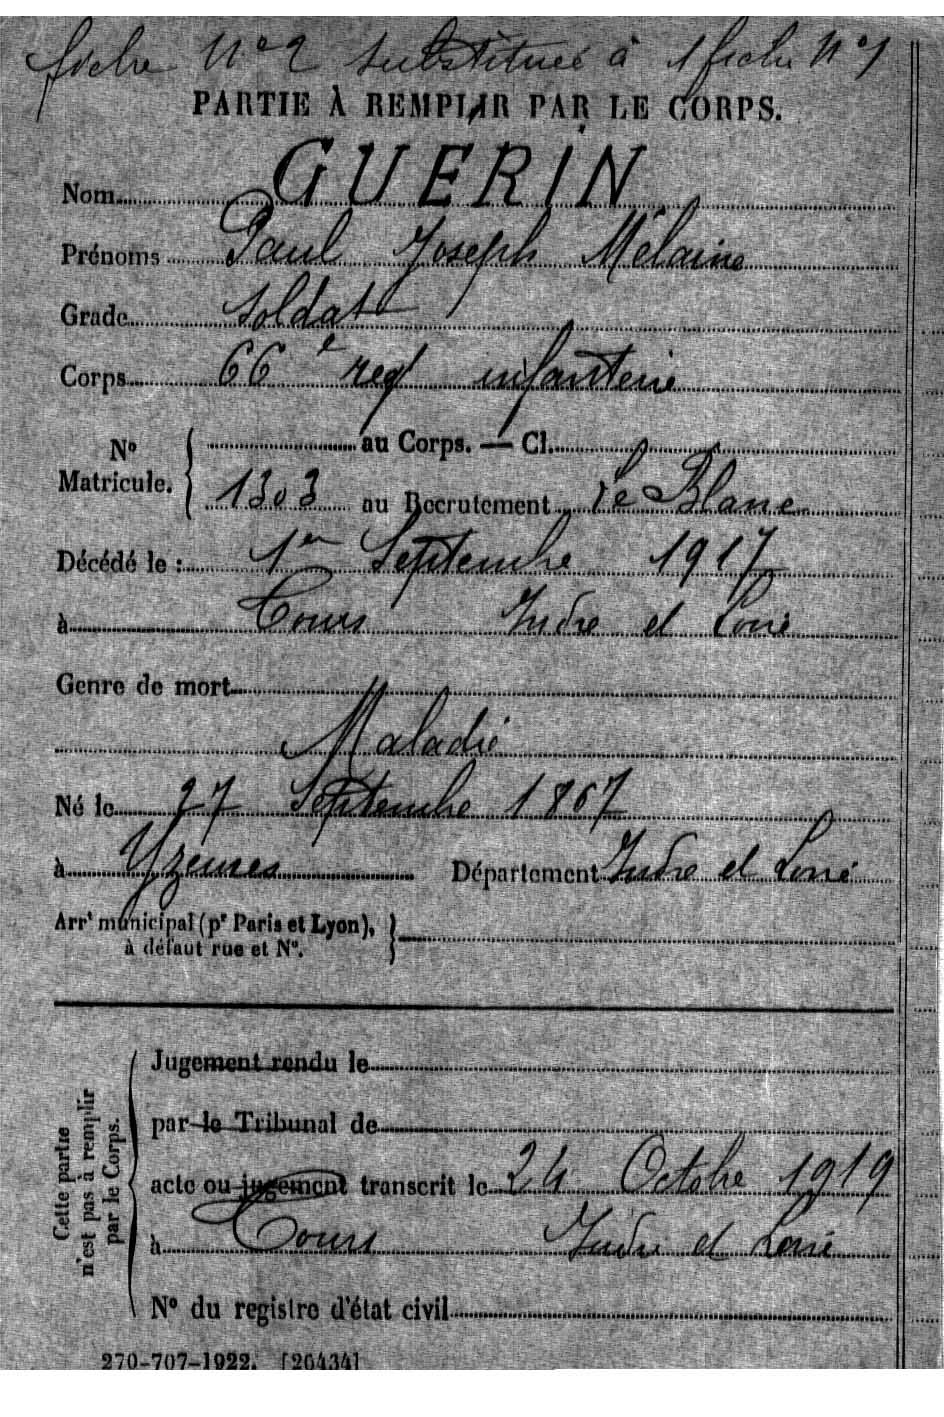 fiche N° 2 substituée à 1 fiche N° 1
PARTIE À REMPLIR PAR LE CORPS.
Nom GUERIN
Prénoms Paul Joseph Mélaine
Grade Soldat
Corps 66e reg infanterie
N° Matricule. { au Corps. — Cl.
1303 au Recrutement Le Blanc
Décédé le : 1er Septembre 1917
à Tours Indre et Loire
Genre de mort
Maladie
Né le 27 Septembre 1867
à Yzeures Département Indre et Loire
Arrt municipal (pr Paris et Lyon), à défaut rue et N°. }
Cette partie n'est pas à remplir par le Corps. {
Jugement rendu le
par le Tribunal de
acte ou jugement transcrit le 24 Octobre 1919
à Tours Indre et Loire
N° du registre d'état civil
270-707-1922. [20434]